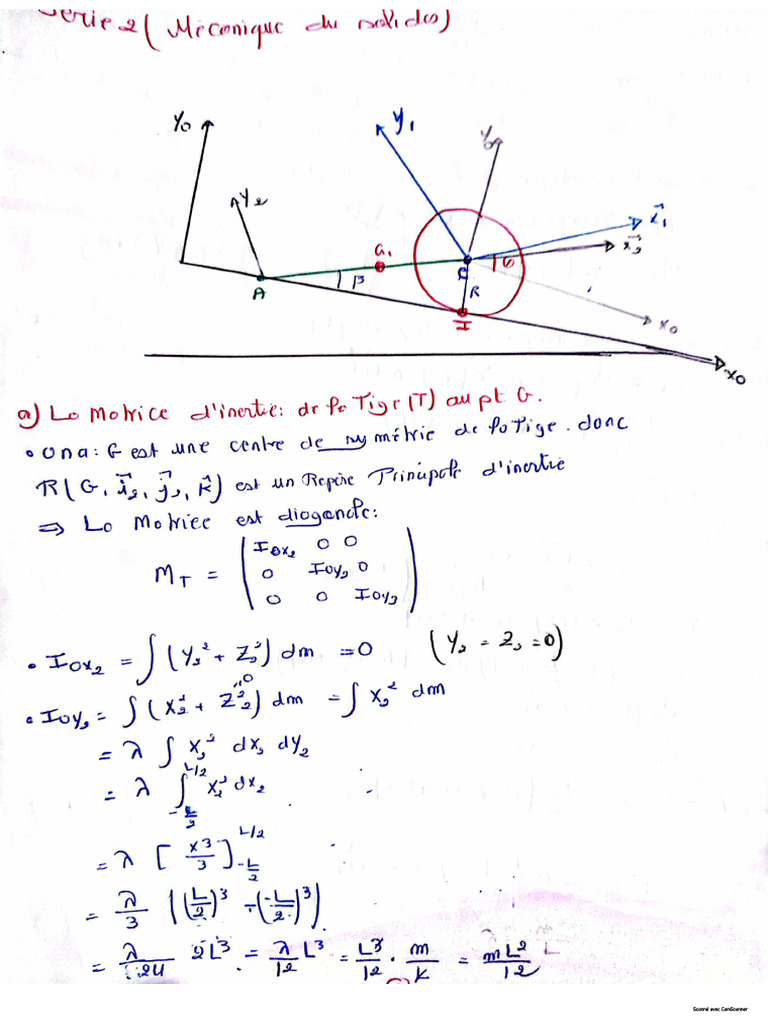 Série 2 ( Mécanique du solides)
Y0
Y1
Y0
Y2
X1
X2
G1
C
θ
β
A
R
I
X0
X0
a) La Matrice d'inertie: de la Tige (T) au pt G.
• On a: G est une centre de symétrie de la Tige. donc
R(G, i2, j2, k) est un Repère Principale d'inertie
⇒ La Matrice est diagonale:
MT = ( IOX2 0 0
0 IOY2 0
0 0 IOY2 )
• IOX2 = ∫ (Y2² + Z2²) dm = 0 (Y2 = Z2 = 0)
• IOY2 = ∫ (X2² + Z2²) dm = ∫ X2² dm
= λ ∫ X2² dX2 dY2
= λ ∫ -L/2 L/2 X2² dX2
= λ [ X³/3 ] -L/2 L/2
= λ/3 ((L/2)³ - (-L/2)³)
= λ/24 2L³ = λ/12 L³ = L³/12 . m/L = mL²/12
Scanné avec CamScanner